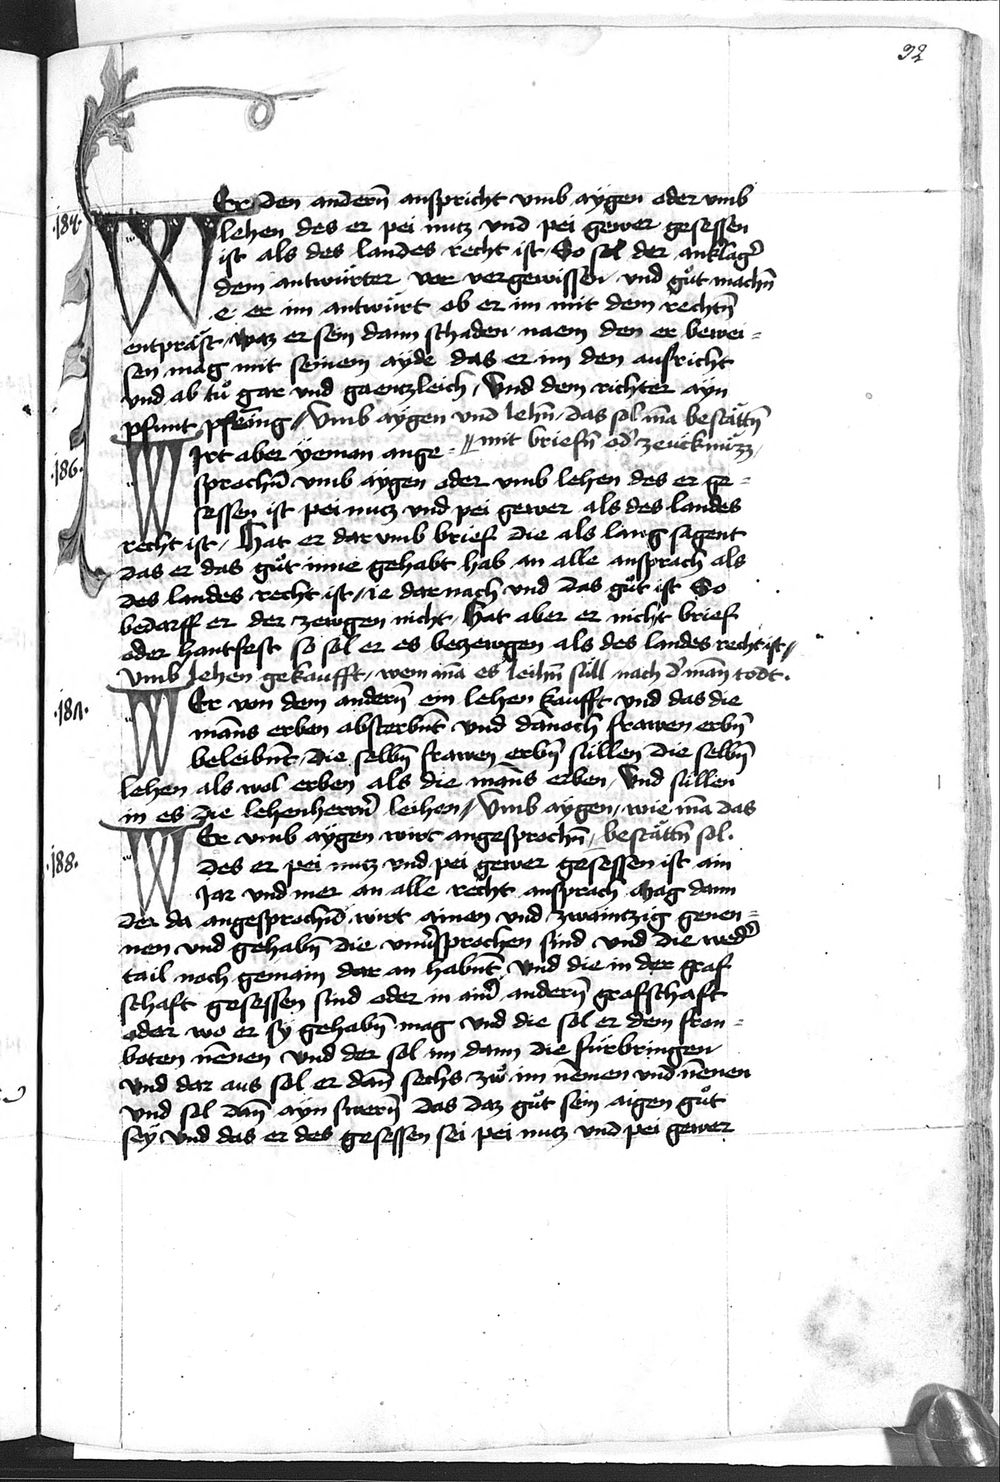 32
·184·
WEr den andern̄ anspricht vmb aygen oder vmb
lehen des er pei nutz vnd pei gewer gesessen
ist als des landes recht ist So sol der anklag̉
dem antwürter vor vergewissen vnd gůt machn̄
e er im antwürt ob er im mit dem rechtn̄
entpräst waz er sein dann schaden naem den er bewei=
sen mag mit seinem ayde das er im den aufricht
vnd ab tů gar vnd gaentzleich Vnd dem richter ayn
pfunt pfēnig // Vmb aygen vnd lehn̄ das sol mā bestättn̄
// mit briefn̄ od̉ zeucknüzz
·186·
WIrt aber yeman ange=
sprochn̄ vmb aygen oder vmb lehen des er ge=
sessen ist pei nutz vnd pei gewer als des landes
recht ist / Hat er dar vmb brief die als lang sagent
das er das gůt inne gehabt hab an alle ansprach als
des landes recht ist / ie dar nach vnd das gůt ist So
bedarff er der zewgen nicht Hat aber er nicht brief
oder hantfest so sol er es bezewgen als des landes recht ist //
Vmb lehen gekaufft / wem mā es leihn̄ süll nach d̉ man̄ todt ·
·187·
WEr von dem andern̄ ein lehen kaufft vnd das die
man̄s erben absterbnt vnd dan̄och frawen erbn̄
beleibnt die selbn̄ frawen erbn̄ süllen die selbn̄
lehen als wol erben als die man̄s erben Vnd süllen
in es die lehenherrn̄ leihen // Vmb aygen / wie mā das
bestättn̄ sol ·
·188·
WEr vmb aygen wirt angesprochn̄
des er pei nutz vnd pei gewer gesessen ist ain
Jar vnd mer an alle recht ansprach Mag dann
der da angesprochn̄ wirt ainen vnd zwaintzig genen=
nen vnd gehabn̄ die vnủsprochen sind vnd die wed̉
tail noch gemain dar an habnt Vnd die in der graf
schaft gesessen sind oder in ain̉ andern̄ grafschaft
oder wo er sy gehabn̄ mag Vnd die sol er dem fron=
boten nēnen Vnd der sol im dann die fürbringen
Vnd dar aus sol er dan̄ sechs zů im nemen vnd nēnen
Vnd sol dan̄ ayn swern̄ das daz gůt sein aigen gůt
sey Vnd das er des gesessen sei pei nutz vnd pei gewer